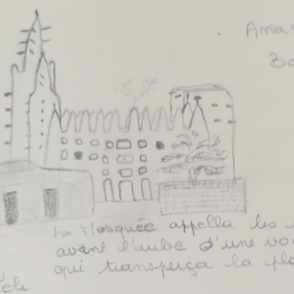 La Mosquée appella les
avant l'aube d'une vo
qui transperça la pla